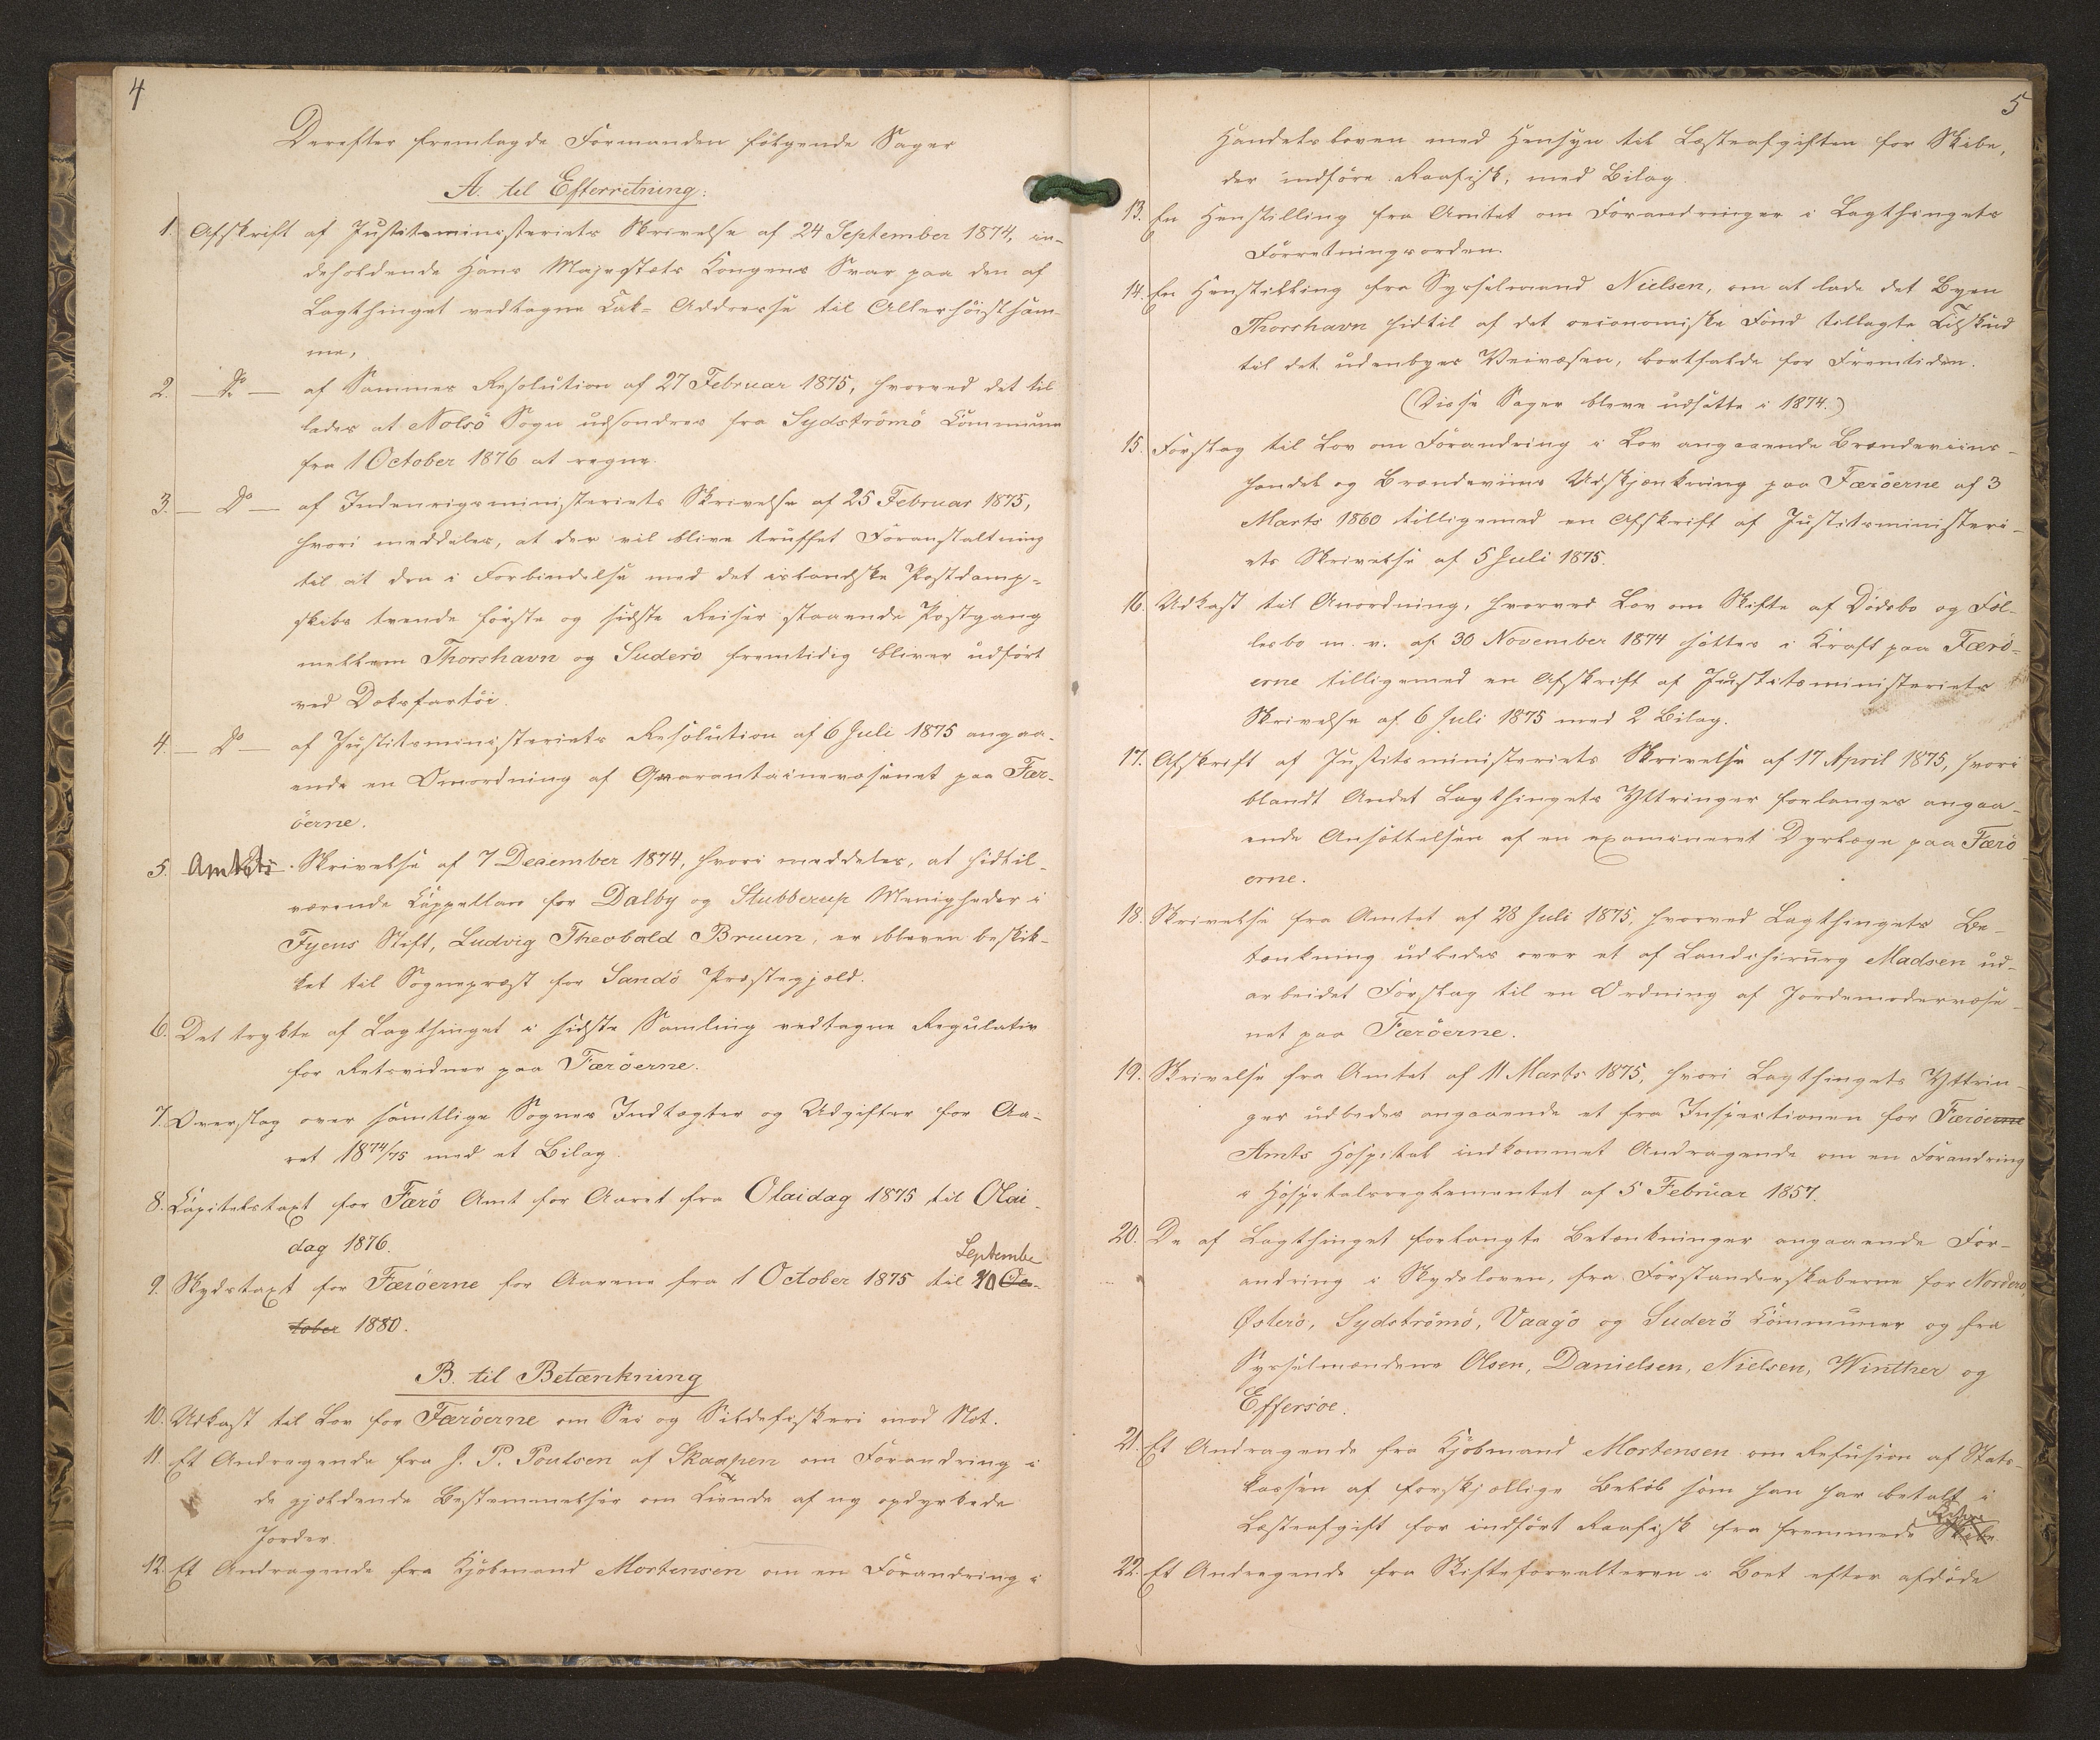 4
Derefter fremlagde Formanden følgende Sager
A. til Efterretning:
1. Afskrift af Justitsministeriets Skrivelse af 24 September 1874, in-
deholdende Hans Majestæts Kongens Svar paa den af
Lagthinget vedtagne Tak- Addresse til Allerhöistsam-
me,
2. — Do — af Sammes Resolution af 27 Februar 1875, hvorved det til
lades at Nolsö Sogn udsondres fra Sydströmö Commune
fra 1 October 1876 at regne.
3. — Do — af Indenrigsministeriets Skrivelse af 25 Februar 1875,
hvori meddeles, at der vil blive truffet Foranstaltning
til at den i Forbindelse med det islandske Postdamp-
skibs trende første og sidste Reiser staaende Postgang
mellem Thorshavn og Suderö fremtidig bliver udført
ved Dæksfartöi.
4. — Do — af Justitsministeriets Resolution af 6 Juli 1875 angaa-
ende en Omordning af Qvarantainevæsenet paa Fær-
öerne.
5. Amtets Skrivelse af 7 December 1874, hvori meddeles, at hidtil-
værende Cappellan for Dalby og Stubberup Menigheder i
Fyens Stift, Ludvig Theobald Bruun, er bleven beskik-
ket til Sognepræst for Sandö Præstegjæld.
6. Det trykte af Lagthinget i sidste Samling vedtagne Regulativ
for Retsvidner paa Færöerne.
7. Overslag over samtlige Sognes Indtægter og Udgifter for Aa-
ret 1874/75 med et Bilag.
8. Capitelstaxt for Færö Amt for Aaret fra Olaidag 1875 til Olai-
dag 1876.
Septembe
9. Skydstaxt for Færöerne for Aarene fra 1 October 1875 til 30 Oc-
tober 1880.
B. til Betænkning
10. Udkast til Lov for Færöerne om Sei og Sildefiskeri med Not.
11. Et Andragende fra J. P. Poulsen af Skaapen om Forandring i
de gjældende Bestemmelser om Tiende af ny opdyrkede
Jorder.
12. Et Andragende fra Kjöbmand Mortensen om en Forandring i
5
Handelsloven med Hensyn til Læsteafgiften for Skibe,
der indföre Raafisk, med Bilag.
13. En Henstilling fra Amtet om Forandringer i Lagthingets
Forretningsorden.
14. En Henstilling fra Sysselmand Nielsen, om at lade det Byen
Thorshavn hidtil af det oeconomiske Fond tillagte Tilskud
til det udenbyes Veivæsen, bortfalde for Fremtiden.
(Disse Sager bleve udsatte i 1874.)
15. Forslag til Lov om Forandring i Lov angaaende Brændeviins-
handel og Brændeviins Udskjænkning paa Færöerne af 3
Marts 1860 tilligemed en Afskrift af Justitsministeri-
ets Skrivelse af 5 Juli 1875.
16. Udkast til Anordning, hvorved Lov om Skifte af Dödsbo og Fæl-
lesbo m. v. af 30 November 1874 sættes i Kraft paa Færö-
erne tilligemed en Afskrift af Justitsministeriets
Skrivelse af 6 Juli 1875 med 2 Bilag.
17. Afskrift af Justitsministeriets Skrivelse af 17 April 1875, hvori
blandt Andet Lagthingets Yttringer forlanges angaa-
ende Ansættelsen af en examineret Dyrlæge paa Færö-
erne.
18. Skrivelse fra Amtet af 28 Juli 1875, hvorved Lagthingets Be-
tænkning udbedes over et af Landchirurg Madsen ud-
arbeidet Forslag til en Ordning af Jordemodervæse-
net paa Færöerne.
19. Skrivelse fra Amtet af 11 Marts 1875, hvori Lagthingets Yttrin-
ger udbedes angaaende et fra Inspectionen for Færöerne
Amts Hospital indkommet Andragende om en Forandring
i Hospitalsreglementet af 5 Februar 1857.
20. De af Lagthinget forlangte Betænkninger angaaende For-
andring i Skydsloven, fra Forstanderskaberne for Norderö,
Østerö, Sydströmö, Vaagö og Suderö Communer og fra
Sysselmændene Olsen, Danielsen, Nielsen, Winther og
Effersöe.
21. Et Andragende fra Kjöbmand Mortensen om Refusion af Stats-
kassen af forskjællige Belöb som han har betalt i
Læsteafgift for indfört Raafisk fra fremmede Skibe
22. Et Andragende fra Skifteforvalteren i Boet efter afdöde